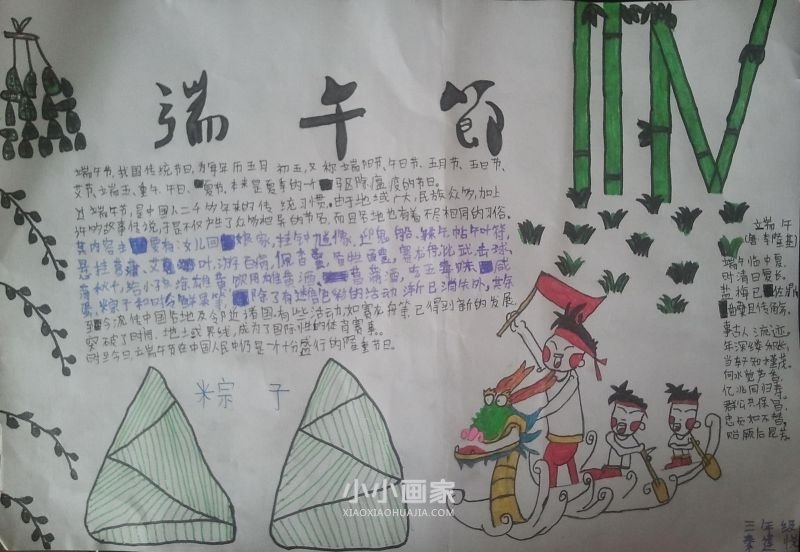 端午節
端午节,我国传统节日,为每年农历五月初五,又称端阳节、午日节、五月节、五日节、
艾节、端五、重午、午日、夏节,本来是夏季的一个驱除瘟疫的节日。
过端午节,是中国人二千多年来的传统习惯。由于地域广大,民族众多,加上
许多故事传说,于是不仅产生了众多相异的节名,而且各地也有着不尽相同的习俗。
其内容主要有:女儿回娘家,挂钟馗像,迎鬼船、躲午,帖午叶符,
悬挂菖蒲、艾叶,游百病,佩香囊,备牲醴,赛龙舟,比武,击球,
荡秋千,给小孩涂雄黄,饮用雄黄酒、菖蒲酒,吃五毒饼、咸
蛋、粽子和时令鲜果等,除了有迷信色彩的活动渐已消失外,其余
至今流传中国各地及邻近诸国。有些活动,如赛龙舟等,已得到新的发展,
突破了时间、地域界线,成为了国际性的体育赛事。
时至今日,端午节在中国人民中仍是一个十分盛行的隆重节日。
粽子
端午
(唐·李隆基)
端午临中夏,
时清日复长。
盐梅已佐鼎,
曲糵且传觞。
事古人流迹,
年深缕积长。
当轩知槿茂,
何水觉芦香。
亿兆同归寿,
群公共保昌。
忠贞如不替,
贻厥后昆芳
小小画家
XIAOXIAOHUAJIA.COM
三年级